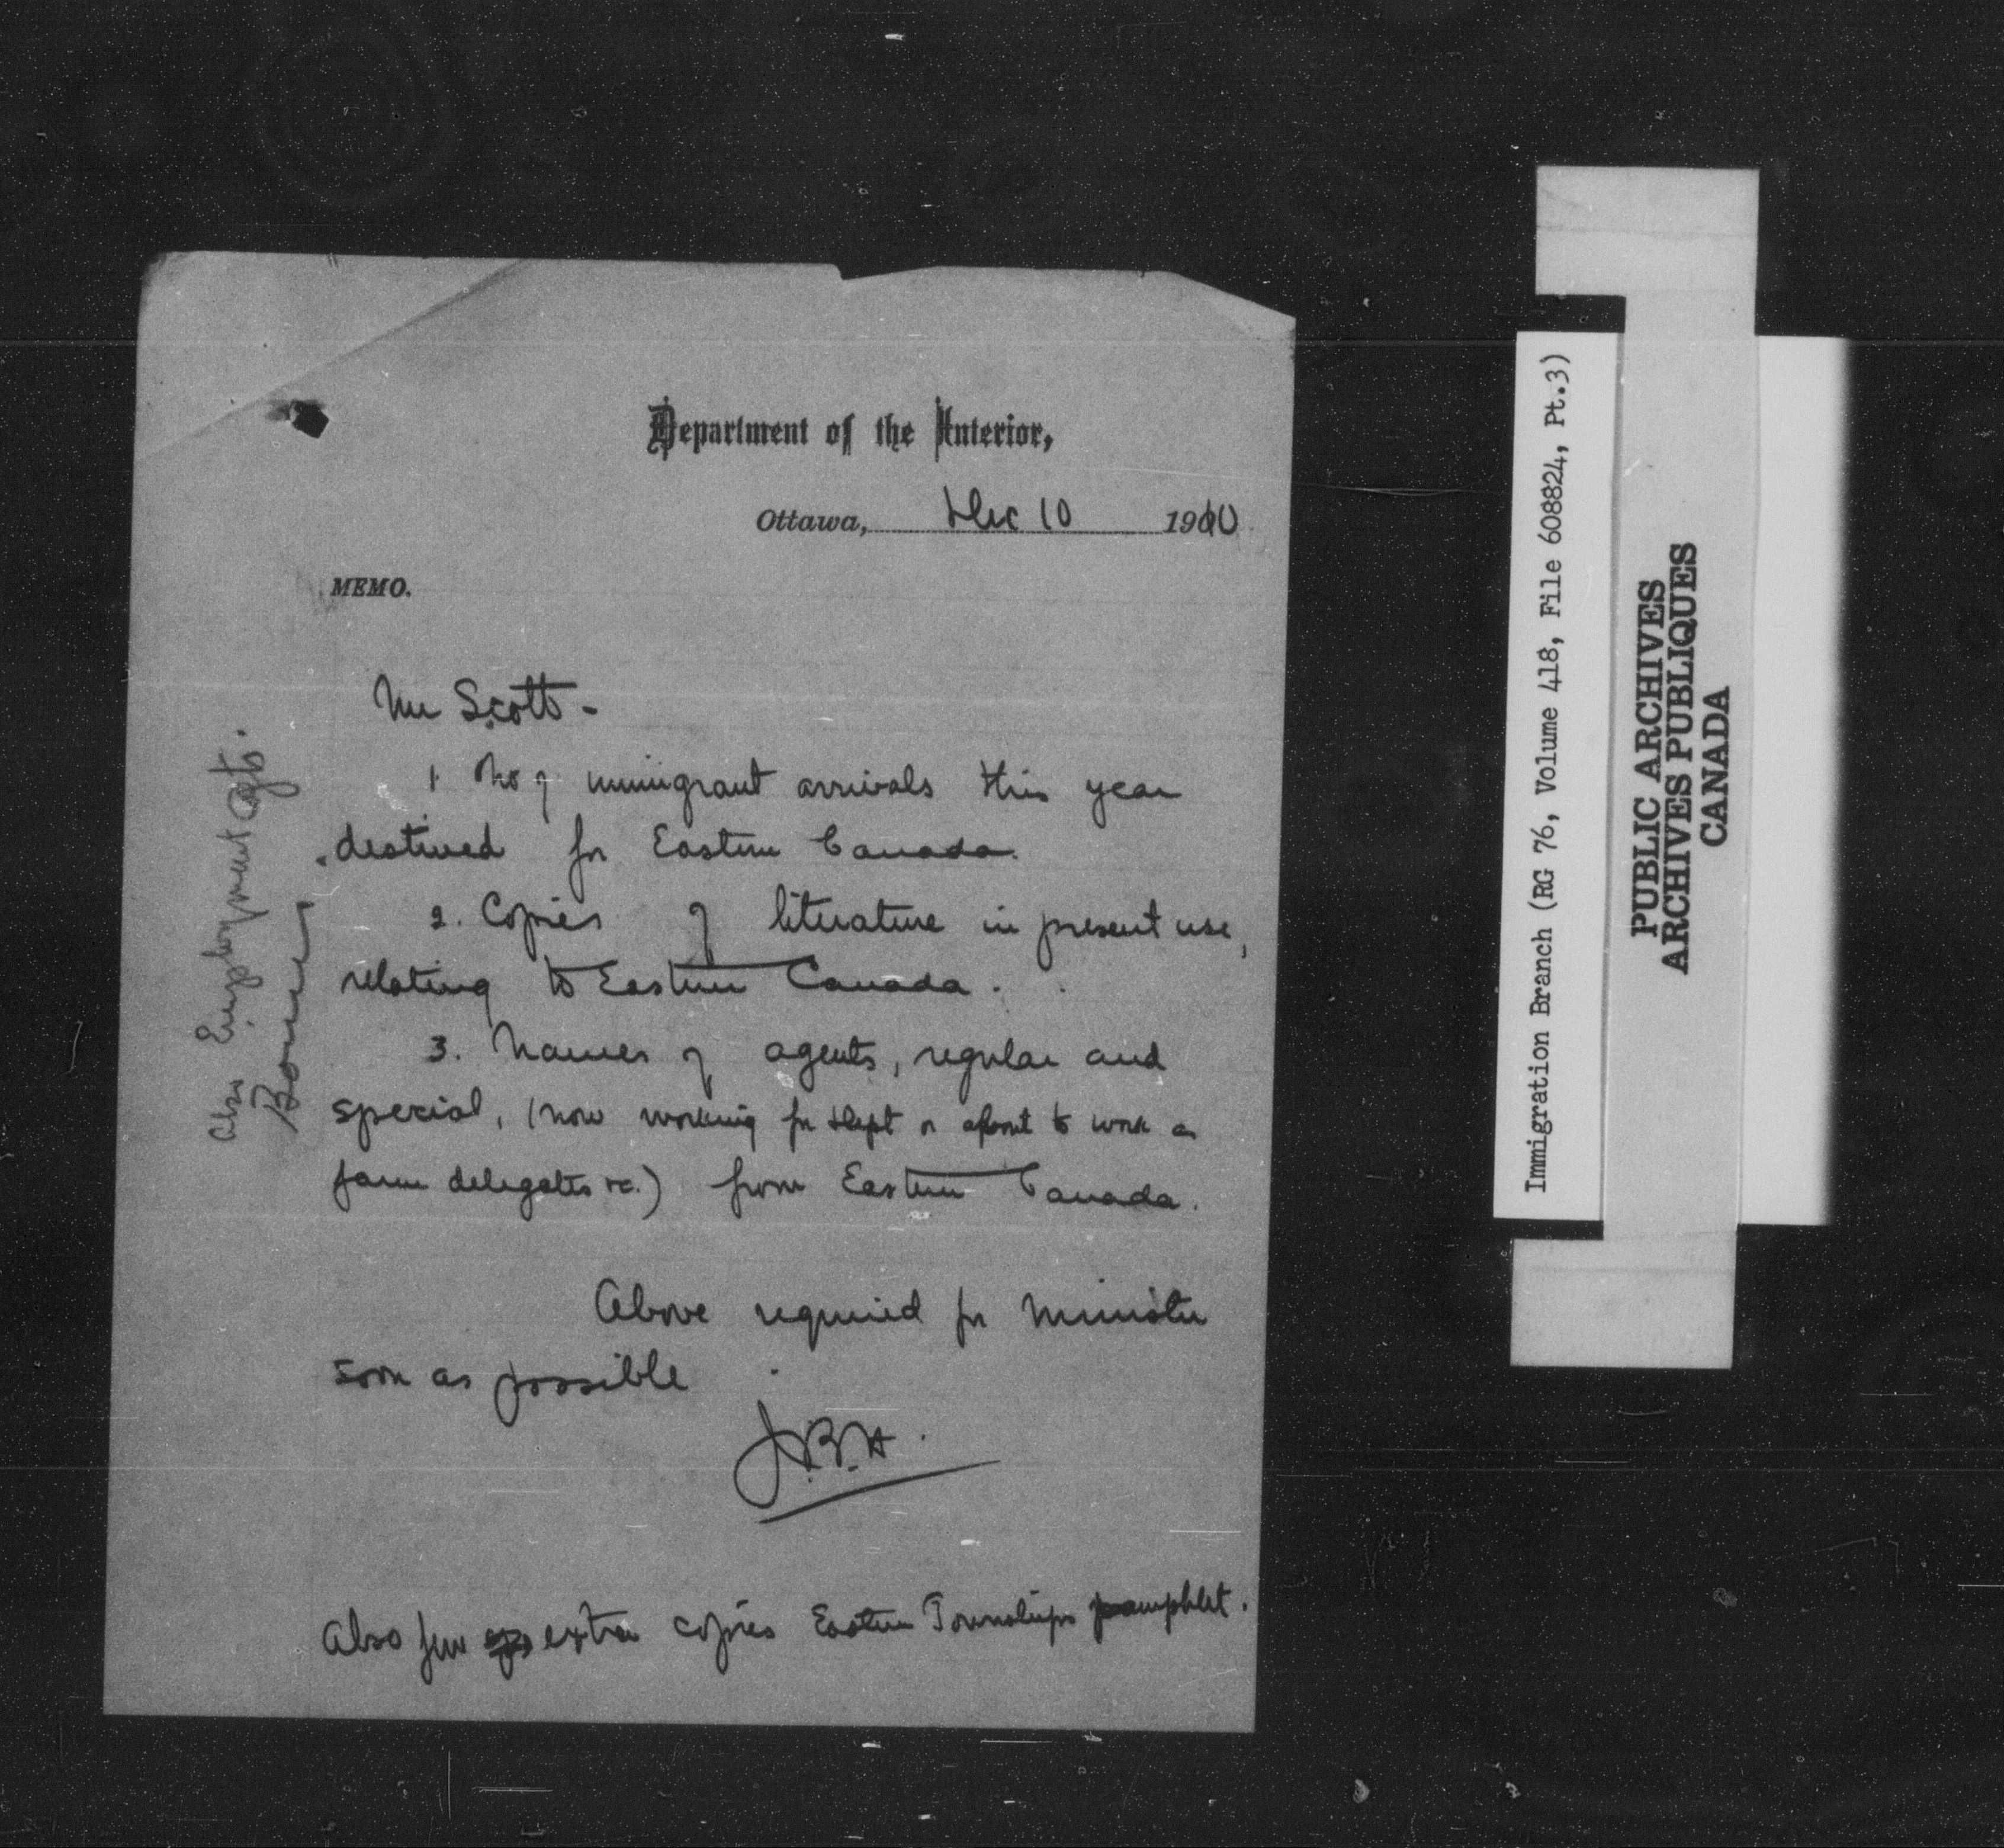 Department of the Interior,
Ottawa, Dec 10 1910
MEMO.
Mr Scott -
1. No of immigrant arrivals this year
destined for Eastern Canada.
2. Copies of literature in present use,
relating to Eastern Canada.
3. Names of agents, regular and
special, (now working for Dept or about to work as
farm delegates &c.) from Eastern Canada.
Above required for Minister
soon as possible.
J.B.H.
Also few extra copies Eastern Townships pamphlet.
Also Employment Agts.
Bonuses
Immigration Branch (RG 76, Volume 418, File 608824, Pt.3)
PUBLIC ARCHIVES
ARCHIVES PUBLIQUES
CANADA